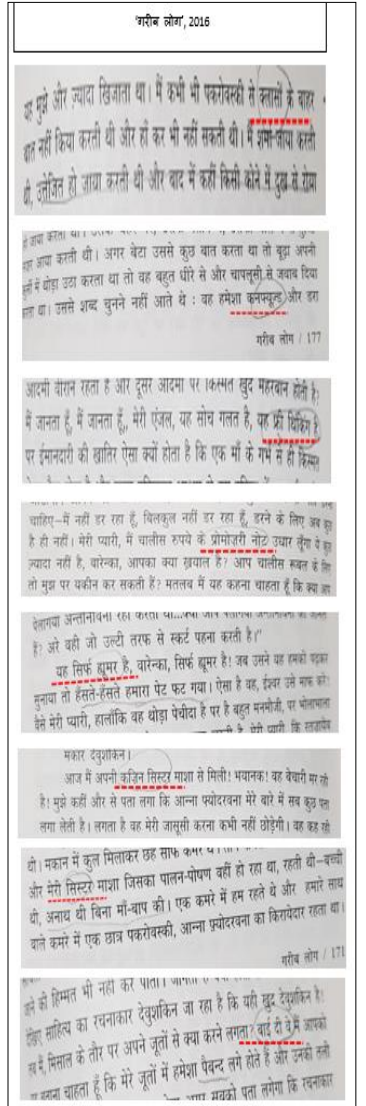 'गरीब लोग', 2016
यह मुझे और ज़्यादा खिजाता था। मैं कभी भी पकरोवस्की से क्लासों के बाहर
बात नहीं किया करती थी और हाँ कर भी नहीं सकती थी। मैं शर्मा-जाया करती
थी, उत्तेजित हो जाया करती थी और बाद में कहीं किसी कोने में दुख से रोया
आया करती थी। अगर बेटा उससे कुछ बात करता था तो बूढ़ा अपनी
में थोड़ा उठा करता था तो वह बहुत धीरे से और चापलूसी से जवाब दिया
था। उससे शब्द चुनने नहीं आते थे : वह हमेशा कनफ्यूज्ड और डरा
गरीब लोग / 177
आदमी वीरान रहता है और दूसर आदमी पर किस्मत खुद मेहरबान होती है;
मैं जानता हूँ, मैं जानता हूँ, मेरी एंजल, यह सोच गलत है, यह फ्री थिंकिंग है
पर ईमानदारी की खातिर ऐसा क्यों होता है कि एक माँ के गर्भ से ही किस्मत
चाहिए–मैं नहीं डर रहा हूँ, बिलकुल नहीं डर रहा हूँ, डरने के लिए अब कुछ
है ही नहीं। मेरी प्यारी, मैं चालीस रुपये के प्रोमोज़री नोट उधार लूँगा ये कुछ
ज़्यादा नहीं है, वारेन्का, आपका क्या ख़याल है? आप चालीस रूबल के लिए
तो मुझ पर यकीन कर सकती हैं? मतलब मैं यह कहना चाहता हूँ कि क्या आप
पेलागेया अन्तानोवना रहा करती थी...क्या आप
है? अरे वही जो उल्टी तरफ से स्कर्ट पहना करती है।"
यह सिर्फ ह्यूमर है, वारेन्का, सिर्फ ह्यूमर है! जब उसने यह हमको पढ़कर
सुनाया तो हँसते-हँसते हमारा पेट फट गया। ऐसा है वह, ईश्वर उसे माफ करे!
वैसे मेरी प्यारी, हालाँकि वह थोड़ा पेचीदा है पर है बहुत मनमौजी, पर भोलाभाला
मकार देवुशकिन।
आज मैं अपनी कज़िन सिस्टर माशा से मिली! भयानक! वह बेचारी मर रही
है! मुझे कहीं और से पता लगा कि आन्ना फ्योदरवना मेरे बारे में सब कुछ पता
लगा लेती है। लगता है वह मेरी जासूसी करना कभी नहीं छोड़ेगी। वह कह रही
थी। मकान में कुल मिलाकर छह साफ कमरे थे।
और मेरी सिस्टर माशा जिसका पालन-पोषण वहीं हो रहा था, रहती थी–बच्ची
थी, अनाथ थी बिना माँ-बाप की। एक कमरे में हम रहते थे और हमारे साथ
वाले कमरे में एक छात्र पकरोवस्की, आन्ना फ़्योदरवना का किरायेदार रहता था।
गरीब लोग / 171
जाने की हिम्मत भी नहीं कर पाता।
साहित्य का रचनाकार देवुशकिन जा रहा है कि यही खुद देवुशकिन है!
मैं, मिसाल के तौर पर अपने जूतों से क्या करने लगता? बाई दी वे मैं आपको
बताना चाहता हूँ कि मेरे जूतों में हमेशा पैबन्द लगे होते हैं और उनकी तली
सबको पता लगेगा कि रचनाकार